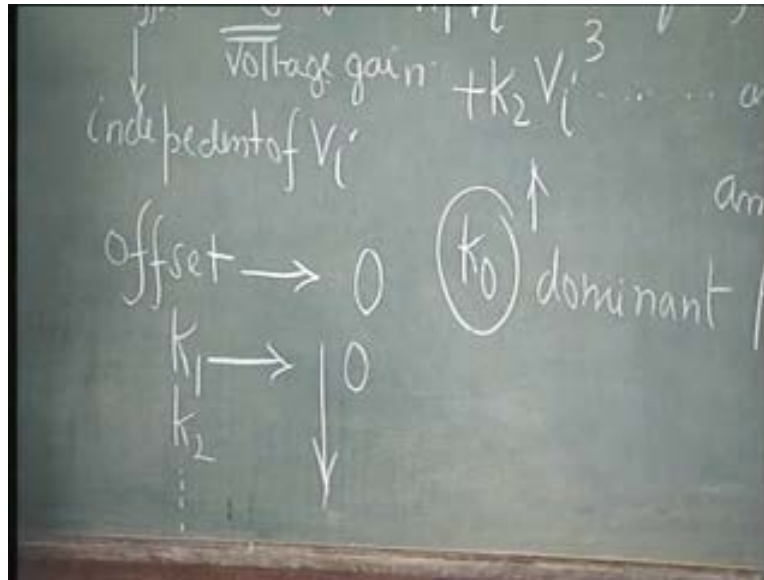 voltage gain
+k₂ Vᵢ³ ......
indepedent of Vᵢ
offset → 0
k₀ dominant
k₁ → 0
k₂